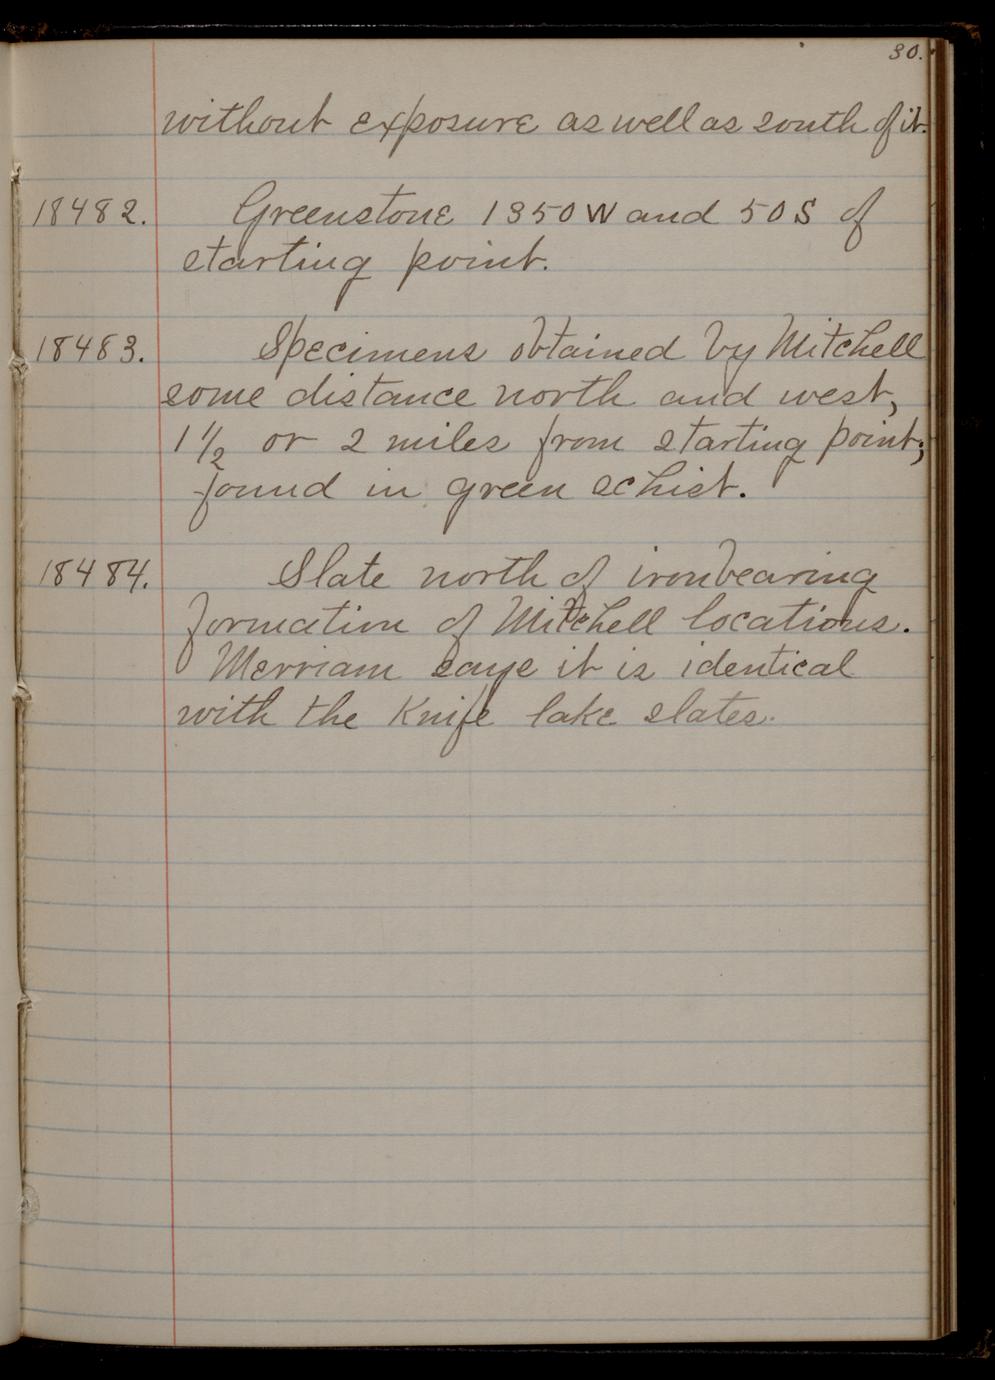 30.
without exposure as well as south of it.
18482. Greenstone 1350 W and 50 S of
starting point.
18483. Specimens obtained by Mitchell
some distance north and west,
1 1/2 or 2 miles from starting point;
found in green schist.
18484. Slate north of ironbearing
formation of Mitchell locations.
Merriam says it is identical
with the Knife lake slates.